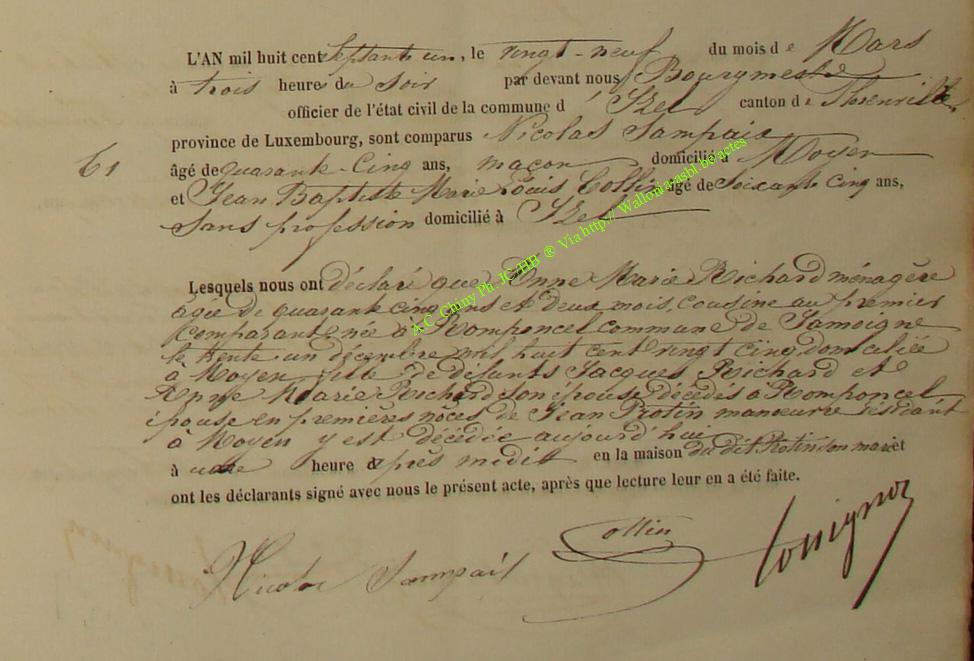 L'AN mil huit cent Septante un, le vingt-neuf du mois de Mars
à trois heures du soir par devant nous Bourgmestre
officier de l'état civil de la commune d'Izel canton de Florenville
province de Luxembourg, sont comparus Nicolas Sampaix
61
âgé de quarante-Cinq ans, maçon domicilié à Moyen
et Jean Baptiste Marie Louis Collin âgé de Soixante cinq ans,
Sans profession domicilié à Izel
A.C. Chiny Ph. JC/HB ® Via http:// Wallonia-asbl.be/actes
Lesquels nous ont déclaré que Anne Marie Richard ménagère
âgée de quarante cinq ans et deux mois, cousine au premier
Comparant, née à Romponcel commune de Jamoigne
le trente un décembre mil huit cent vingt cinq, domiciliée
à Moyen, fille de défunts Jacques Richard et
Anne Marie Richard son épouse décédés à Romponcel
épouse en premières nôces de Jean Rotin manœuvre résidant
à Moyen y est décédée aujourd'hui
à une heure après midi en la maison du dit Rotin son mari et
ont les déclarants signé avec nous le présent acte, après que lecture leur en a été faite.
Collin
Nicolas Sampaix